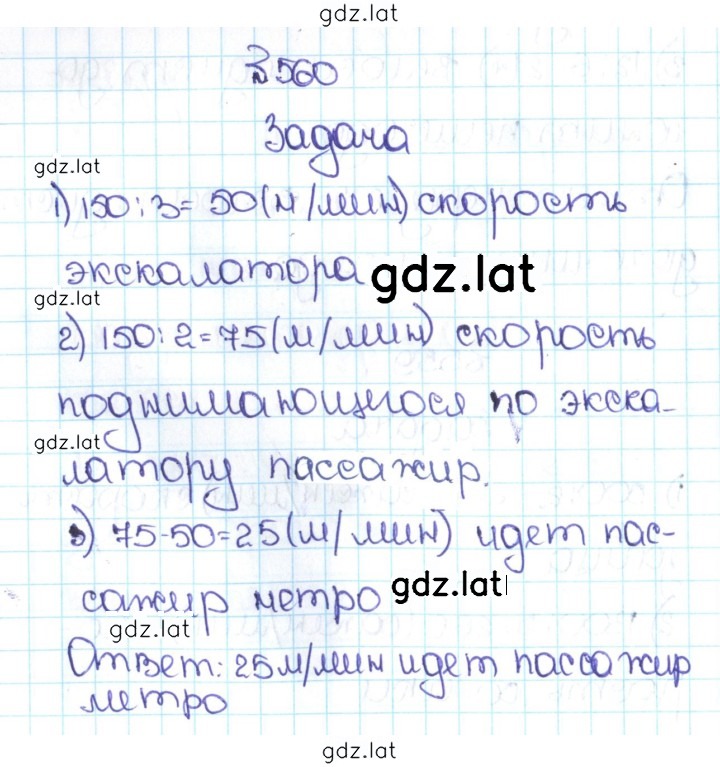 gdz.lat
№560
Задача
gdz.lat
1) 150:3=50(м/мин) скорость
экскалатора gdz.lat
gdz.lat
2) 150:2=75(м/мин) скорость
поднимающегося по экска-
gdz.lat
латору пассажир.
3) 75-50=25(м/мин) идет пас-
сажир метро gdz.lat
gdz.lat
Ответ: 25м/мин идет пассажир
метро
gdz.lat